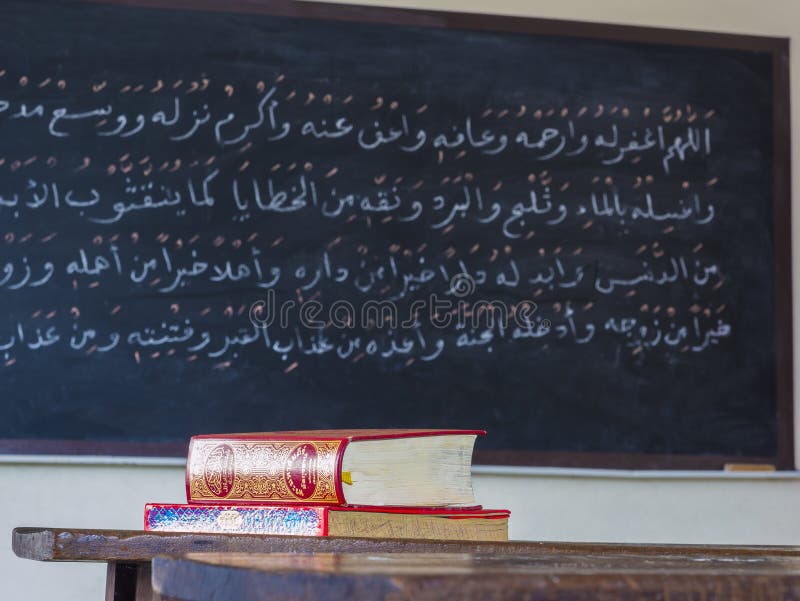 اَللّٰهُمَّ اغْفِرْلَهُ وَارْحَمْهُ وَعَافِهِ وَاعْفُ عَنْهُ وَأَكْرِمْ نُزُلَهُ وَوَسِّعْ مَدْخَ
وَاغْسِلْهُ بِالْمَاءِ وَثَلْجٍ وَالْبَرَدِ وَنَقِّهِ مِنَ الْخَطَايَا كَمَا يُنَقَّثَّوْبُ الْأَبْ
مِنَ الدَّنَسِ وَابْدِ لْهُ دَارًا خَيْرًا مِنْ دَارِهِ وَأَهْلًا خَيْرًا مِنْ أَهْلِهِ وَزَوْ
خَيْرًا مِنْ زَوْجِهِ وَأَدْخِلْهُ الْجَنَّةَ وَأَعِذْهُ مِنْ عَذَابِ الْقَبْرِ وَفِتْنَتِهِ وَمِنْ عَذَابِ
dreamstime